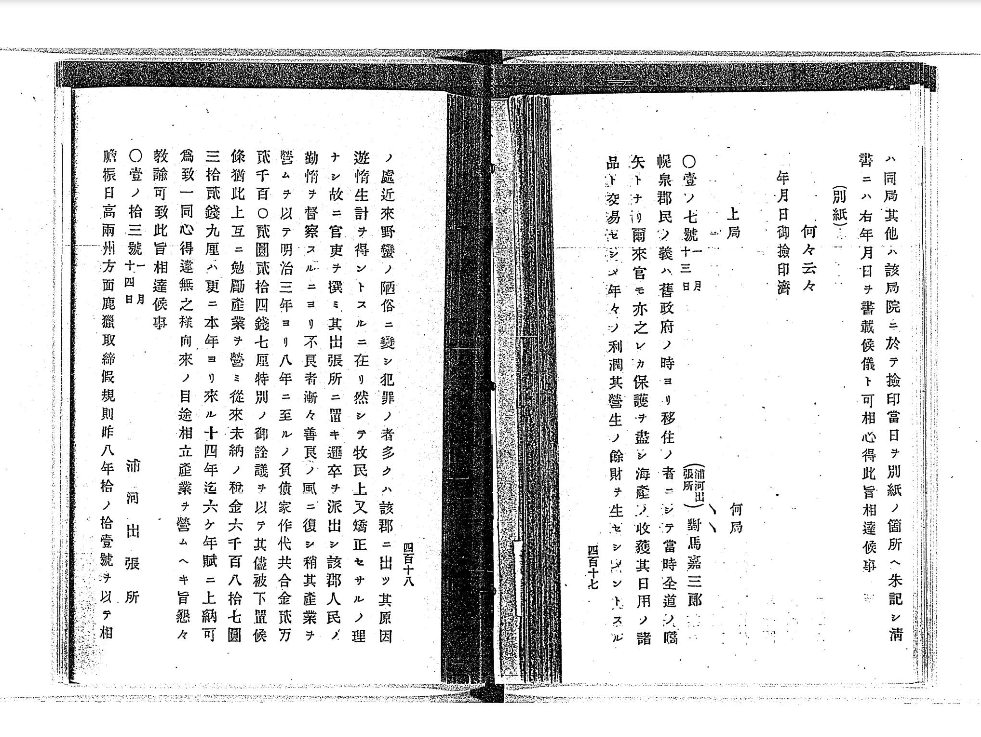 ハ同局其他ハ該局院ニ於テ撿印當日ヲ別紙ノ箇所ヘ朱記シ淸
書ニハ右年月日ヲ書載候儀ト可相心得此旨相達候事
(別紙)
何々云々
年月日御撿印濟
上局
何局
〇壹ノ七號 一月十三日 (浦河出張所) 對馬嘉三郎
幌泉郡民ノ義ハ舊政府ノ時ヨリ移住ノ者ニシテ當時全道ノ嚆
矢トナリ爾來官モ亦之レカ保護ヲ盡シ海產ノ收獲其日用ノ諸
品ト交易セシメ年々ノ利潤其營生ノ餘財ヲ生セシメントスル
四百十七
ノ處近來野蠻ノ陋俗ニ變シ犯罪ノ者多クハ該郡ニ出ツ其原因
遊惰生計ヲ得ントスルニ在リ然シテ牧民上又矯正セサルノ理
ナシ故ニ官吏ヲ撰ミ其出張所ニ置キ邏卒ヲ派出シ該郡人民ノ
勤惰ヲ督察スルニヨリ不良者漸々善良ノ風ニ復シ稍其產業ヲ
營ムヲ以テ明治三年ヨリ八年ニ至ルノ負債家作代共合金貳万
貳千百〇貳圓貳拾四錢七厘特別ノ御詮議ヲ以テ其儘被下置候
條猶此上互ニ勉勵產業ヲ營ミ從來未納ノ稅金六千百八拾七圓
三拾貳錢九厘ハ更ニ本年ヨリ來ル十四年迄六ケ年賦ニ上納可
爲致一同心得違無之樣向來ノ目途相立產業ヲ營ムヘキ旨懇々
敎諭可致此旨相達候事
〇壹ノ拾三號 一月十四日 浦河出張所
膽振日高兩州方面鹿獵取締假規則昨八年拾ノ拾壹號ヲ以テ相
四百十八